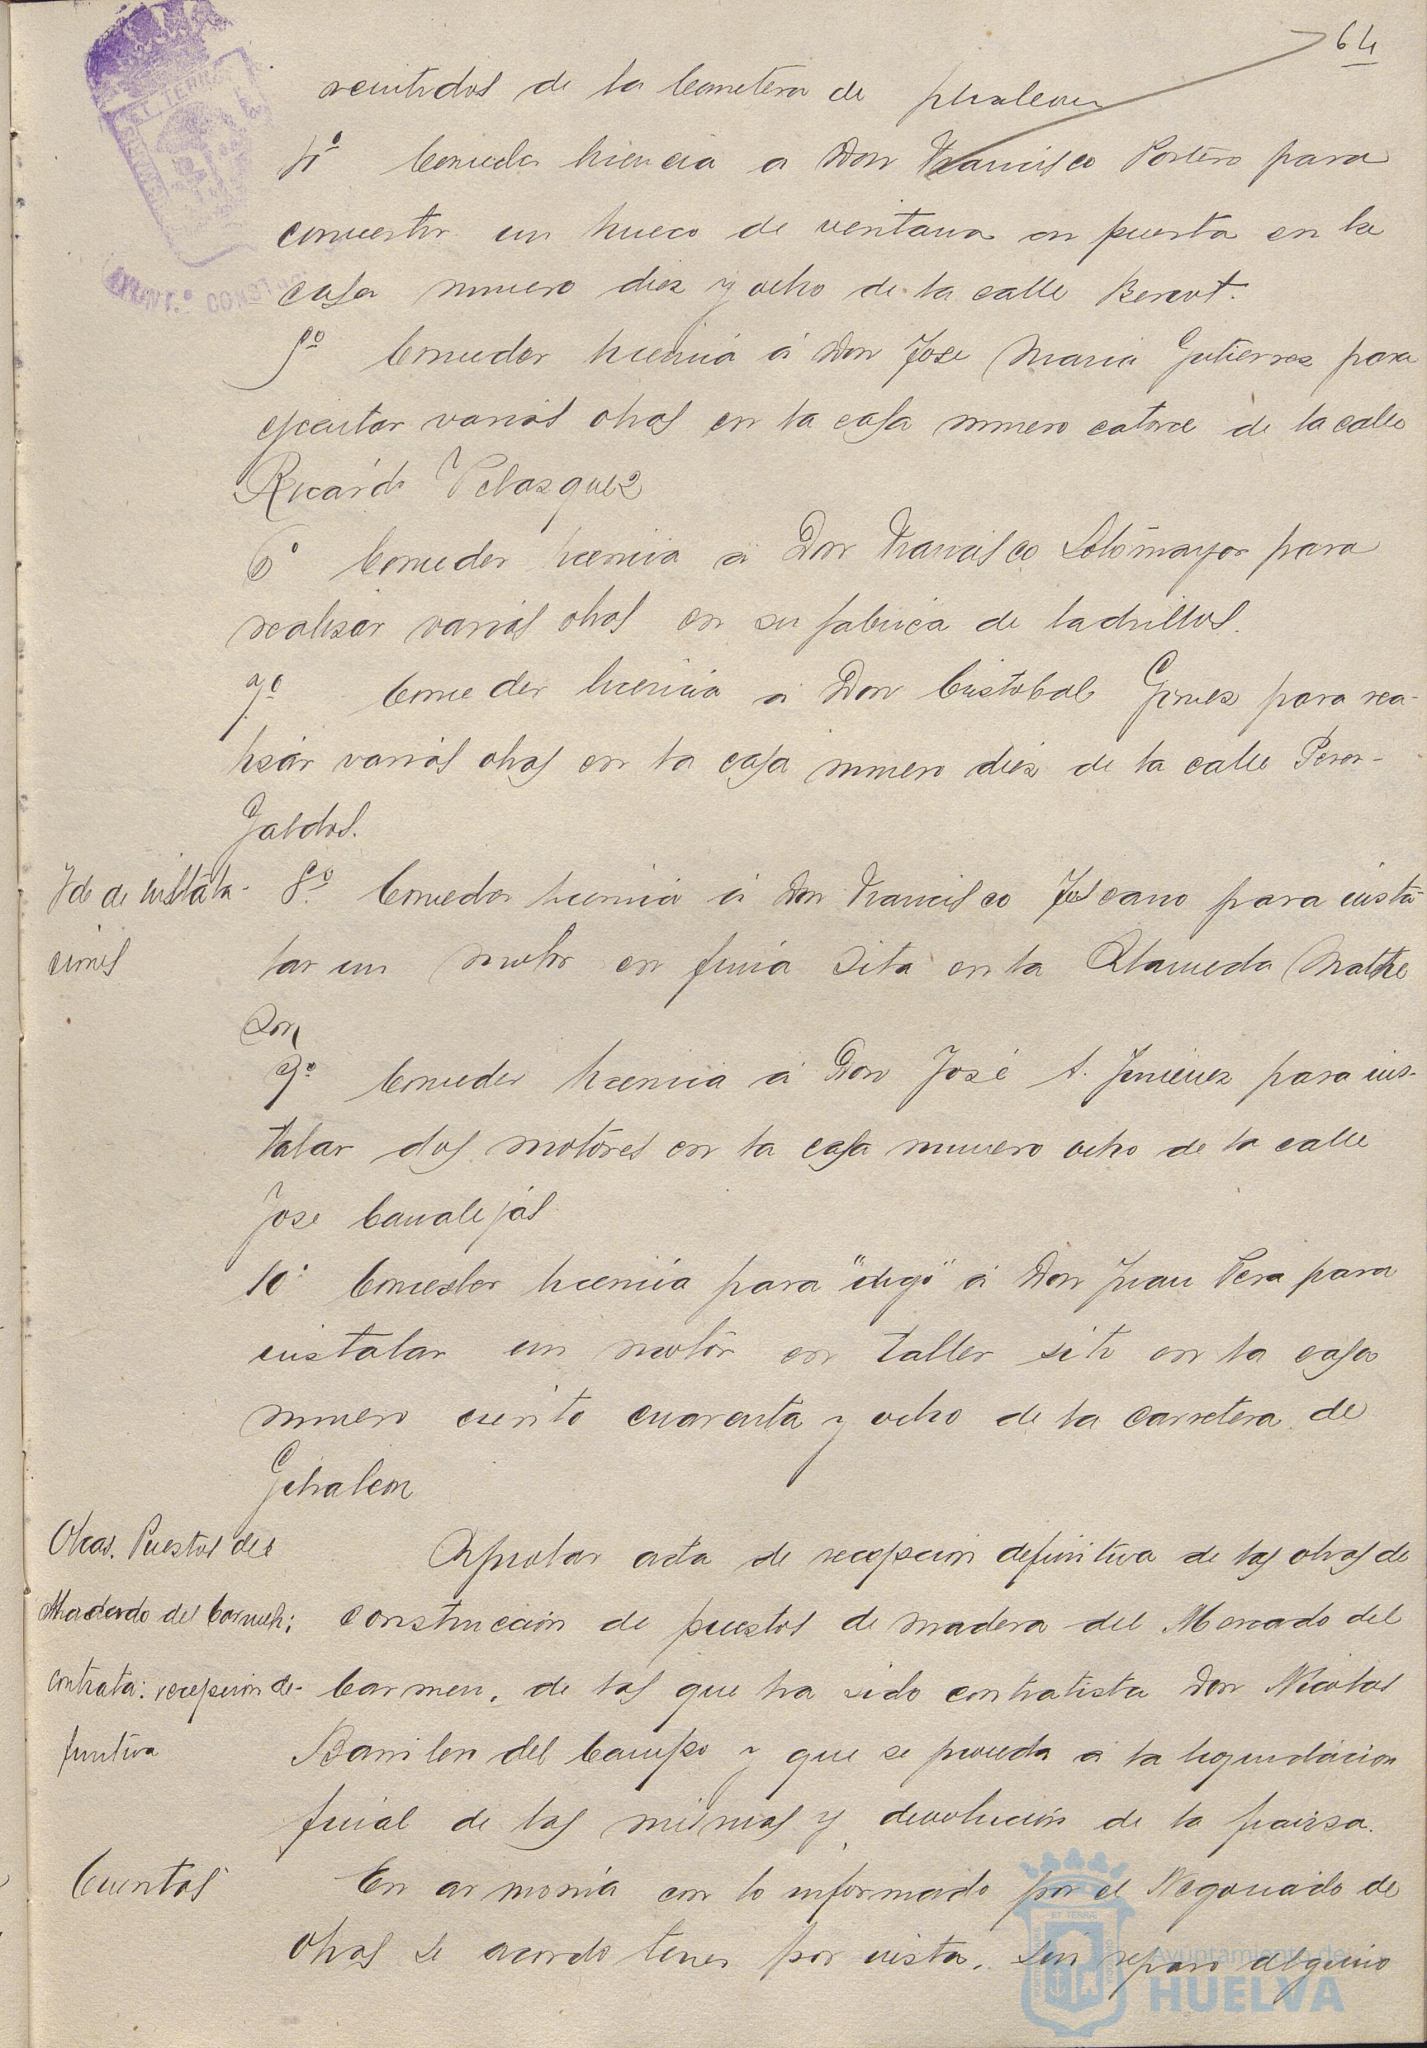 64
de la Carretera de Gibraleon
4º Conceder licencia a Don Francisco Portero para
convertir un hueco de ventana en puerta en la
casa numero diez y ocho de la calle
5º Conceder licencia á Don Jose Maria Gutierrez para
ejecutar varias obras en la casa numero catorce de la calle
Ricardo Velazquez
6º Conceder licencia á Don Francisco Sotomayor para
realizar varias obras en su fabrica de ladrillos.
7º Conceder licencia á Don Cristobal Gomez para rea-
lizar varias obras en la casa numero diez de la calle Perez
Galdos.
Id de instala-
ciones
8º Conceder licencia á Don Francisco para insta-
lar un motor en finca sita en la Alameda
9º Conceder licencia á Don José A. Jimenez para ins-
talar dos motores en la casa numero ocho de la calle
Jose Canalejas
10º Conceder licencia para "digo" á Don Juan Vera para
instalar un motor en taller sito en la casa
numero ciento cuarenta y ocho de la carretera de
Gibraleon
Obras. Puestos del
Mercado del Carmen;
contrata: recepcion de-
finitiva
Aprobar acta de recepcion definitiva de las obras de
construccion de puestos de madera del Mercado del
Carmen, de las que ha sido contratista Don Nicolas
del Campo y que se proceda á la liquidacion
final de las mismas y devolucion de la fianza.
Cuentas
En armonia con lo informado por el Negociado de
Obras se acordo tener por vista, sin reparo alguno
Ayuntamiento de
HUELVA